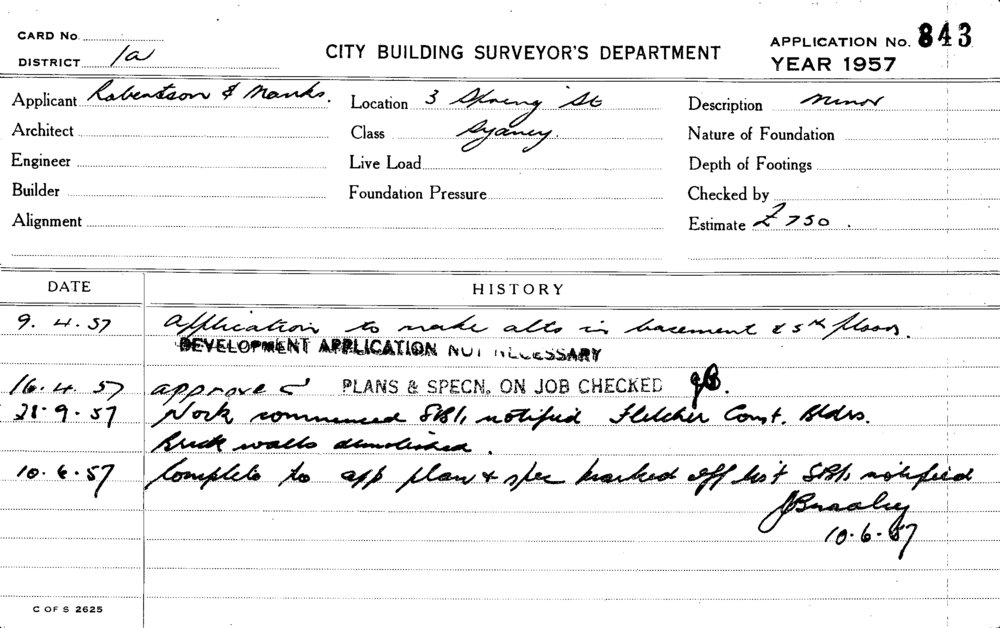 CARD No.
DISTRICT 1a
CITY BUILDING SURVEYOR'S DEPARTMENT
APPLICATION No. 843
YEAR 1957
Applicant Robertson & Marks.
Location 3 Spring St
Description minor
Architect
Class Sydney.
Nature of Foundation
Engineer
Live Load
Depth of Footings
Builder
Foundation Pressure
Checked by
Alignment
Estimate £750.
DATE
HISTORY
9.4.57 Application to make alts in basement & 5th floors.
DEVELOPMENT APPLICATION NOT NECESSARY
16.4.57 approved PLANS & SPECN. ON JOB CHECKED
9.57 Work commenced notified Fletcher Const. Bldrs.
Brick walls demolished.
10.6.57 Complete to app plan & spec marked off list notified
JBradley
10.6.57
C OF S 2625